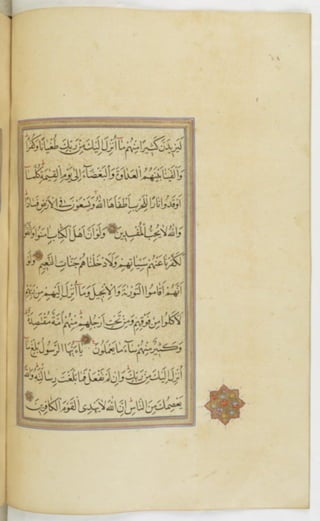 لَيَزِيدَنَّ كَثِيرًا مِنْهُمْ مَا أُنْزِلَ إِلَيْكَ مِنْ رَبِّكَ طُغْيَانًا وَكُفْرًا
وَأَلْقَيْنَا بَيْنَهُمُ الْعَدَاوَةَ وَالْبَغْضَاءَ إِلَى يَوْمِ الْقِيمَةِ كُلَّمَا
أَوْقَدُوا نَارًا لِلْحَرْبِ أَطْفَأَهَا اللَّهُ وَيَسْعَوْنَ فِي الْأَرْضِ فَسَادًا
وَاللَّهُ لَا يُحِبُّ الْمُفْسِدِينَ وَلَوْ أَنَّ أَهْلَ الْكِتَابِ آمَنُوا وَاتَّقَوْا
لَكَفَّرْنَا عَنْهُمْ سَيِّئَاتِهِمْ وَلَأَدْخَلْنَاهُمْ جَنَّاتِ النَّعِيمِ وَلَوْ
أَنَّهُمْ أَقَامُوا التَّوْرَيةَ وَالْإِنْجِيلَ وَمَا أُنْزِلَ إِلَيْهِمْ مِنْ رَبِّهِمْ
لَأَكَلُوا مِنْ فَوْقِهِمْ وَمِنْ تَحْتِ أَرْجُلِهِمْ مِنْهُمْ أُمَّةٌ مُقْتَصِدَةٌ
وَكَثِيرٌ مِنْهُمْ سَاءَ مَا يَعْمَلُونَ يَا أَيُّهَا الرَّسُولُ بَلِّغْ مَا
أُنْزِلَ إِلَيْكَ مِنْ رَبِّكَ وَإِنْ لَمْ تَفْعَلْ فَمَا بَلَّغْتَ رِسَالَتَهُ وَاللَّهُ
يَعْصِمُكَ مِنَ النَّاسِ إِنَّ اللَّهَ لَا يَهْدِي الْقَوْمَ الْكَافِرِينَ